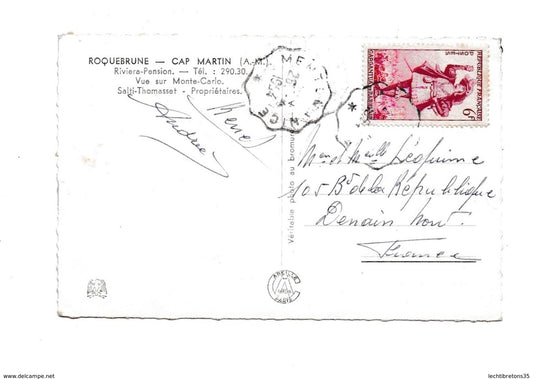 ROQUEBRUNE — CAP MARTIN (A.-M.)
Riviera-Pension. — Tél. : 290.30.
Vue sur Monte-Carlo.
Salti-Thomasset - Propriétaires.
MENTON A NICE
1954
RÉPUBLIQUE FRANÇAISE
POSTES
GARGANTUA RABELAIS
6F
René
Andrée
Véritable photo au bromure
105 Bd de la République
Denain Nord
France
ABEILLE
PARIS
www.delcampe.net
lechtibretons35